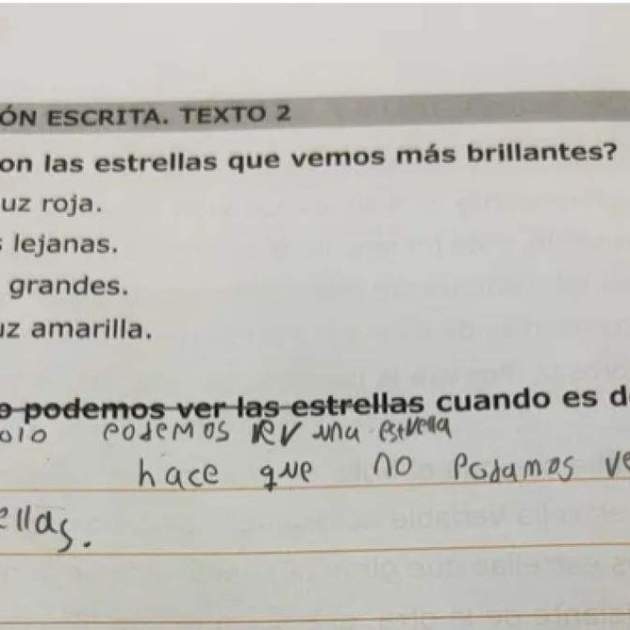 ÓN ESCRITA. TEXTO 2
on las estrellas que vemos más brillantes?
uz roja.
s lejanas.
grandes.
uz amarilla.
o podemos ver las estrellas cuando es d
olo podemos ver una estrella
hace que no podamos ve
ellas.